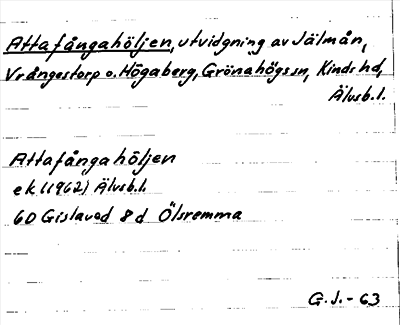 Attafångahöljen, utvidgning av Jälmån,
Vrångestorp o. Högaberg, Grönahögs sn, Kinds hd,
Älvsb. l.
Attafångahöljen
ek (1962) Älvsb. l.
6D Gislaved 8d Ölsremma
G. J. - 63